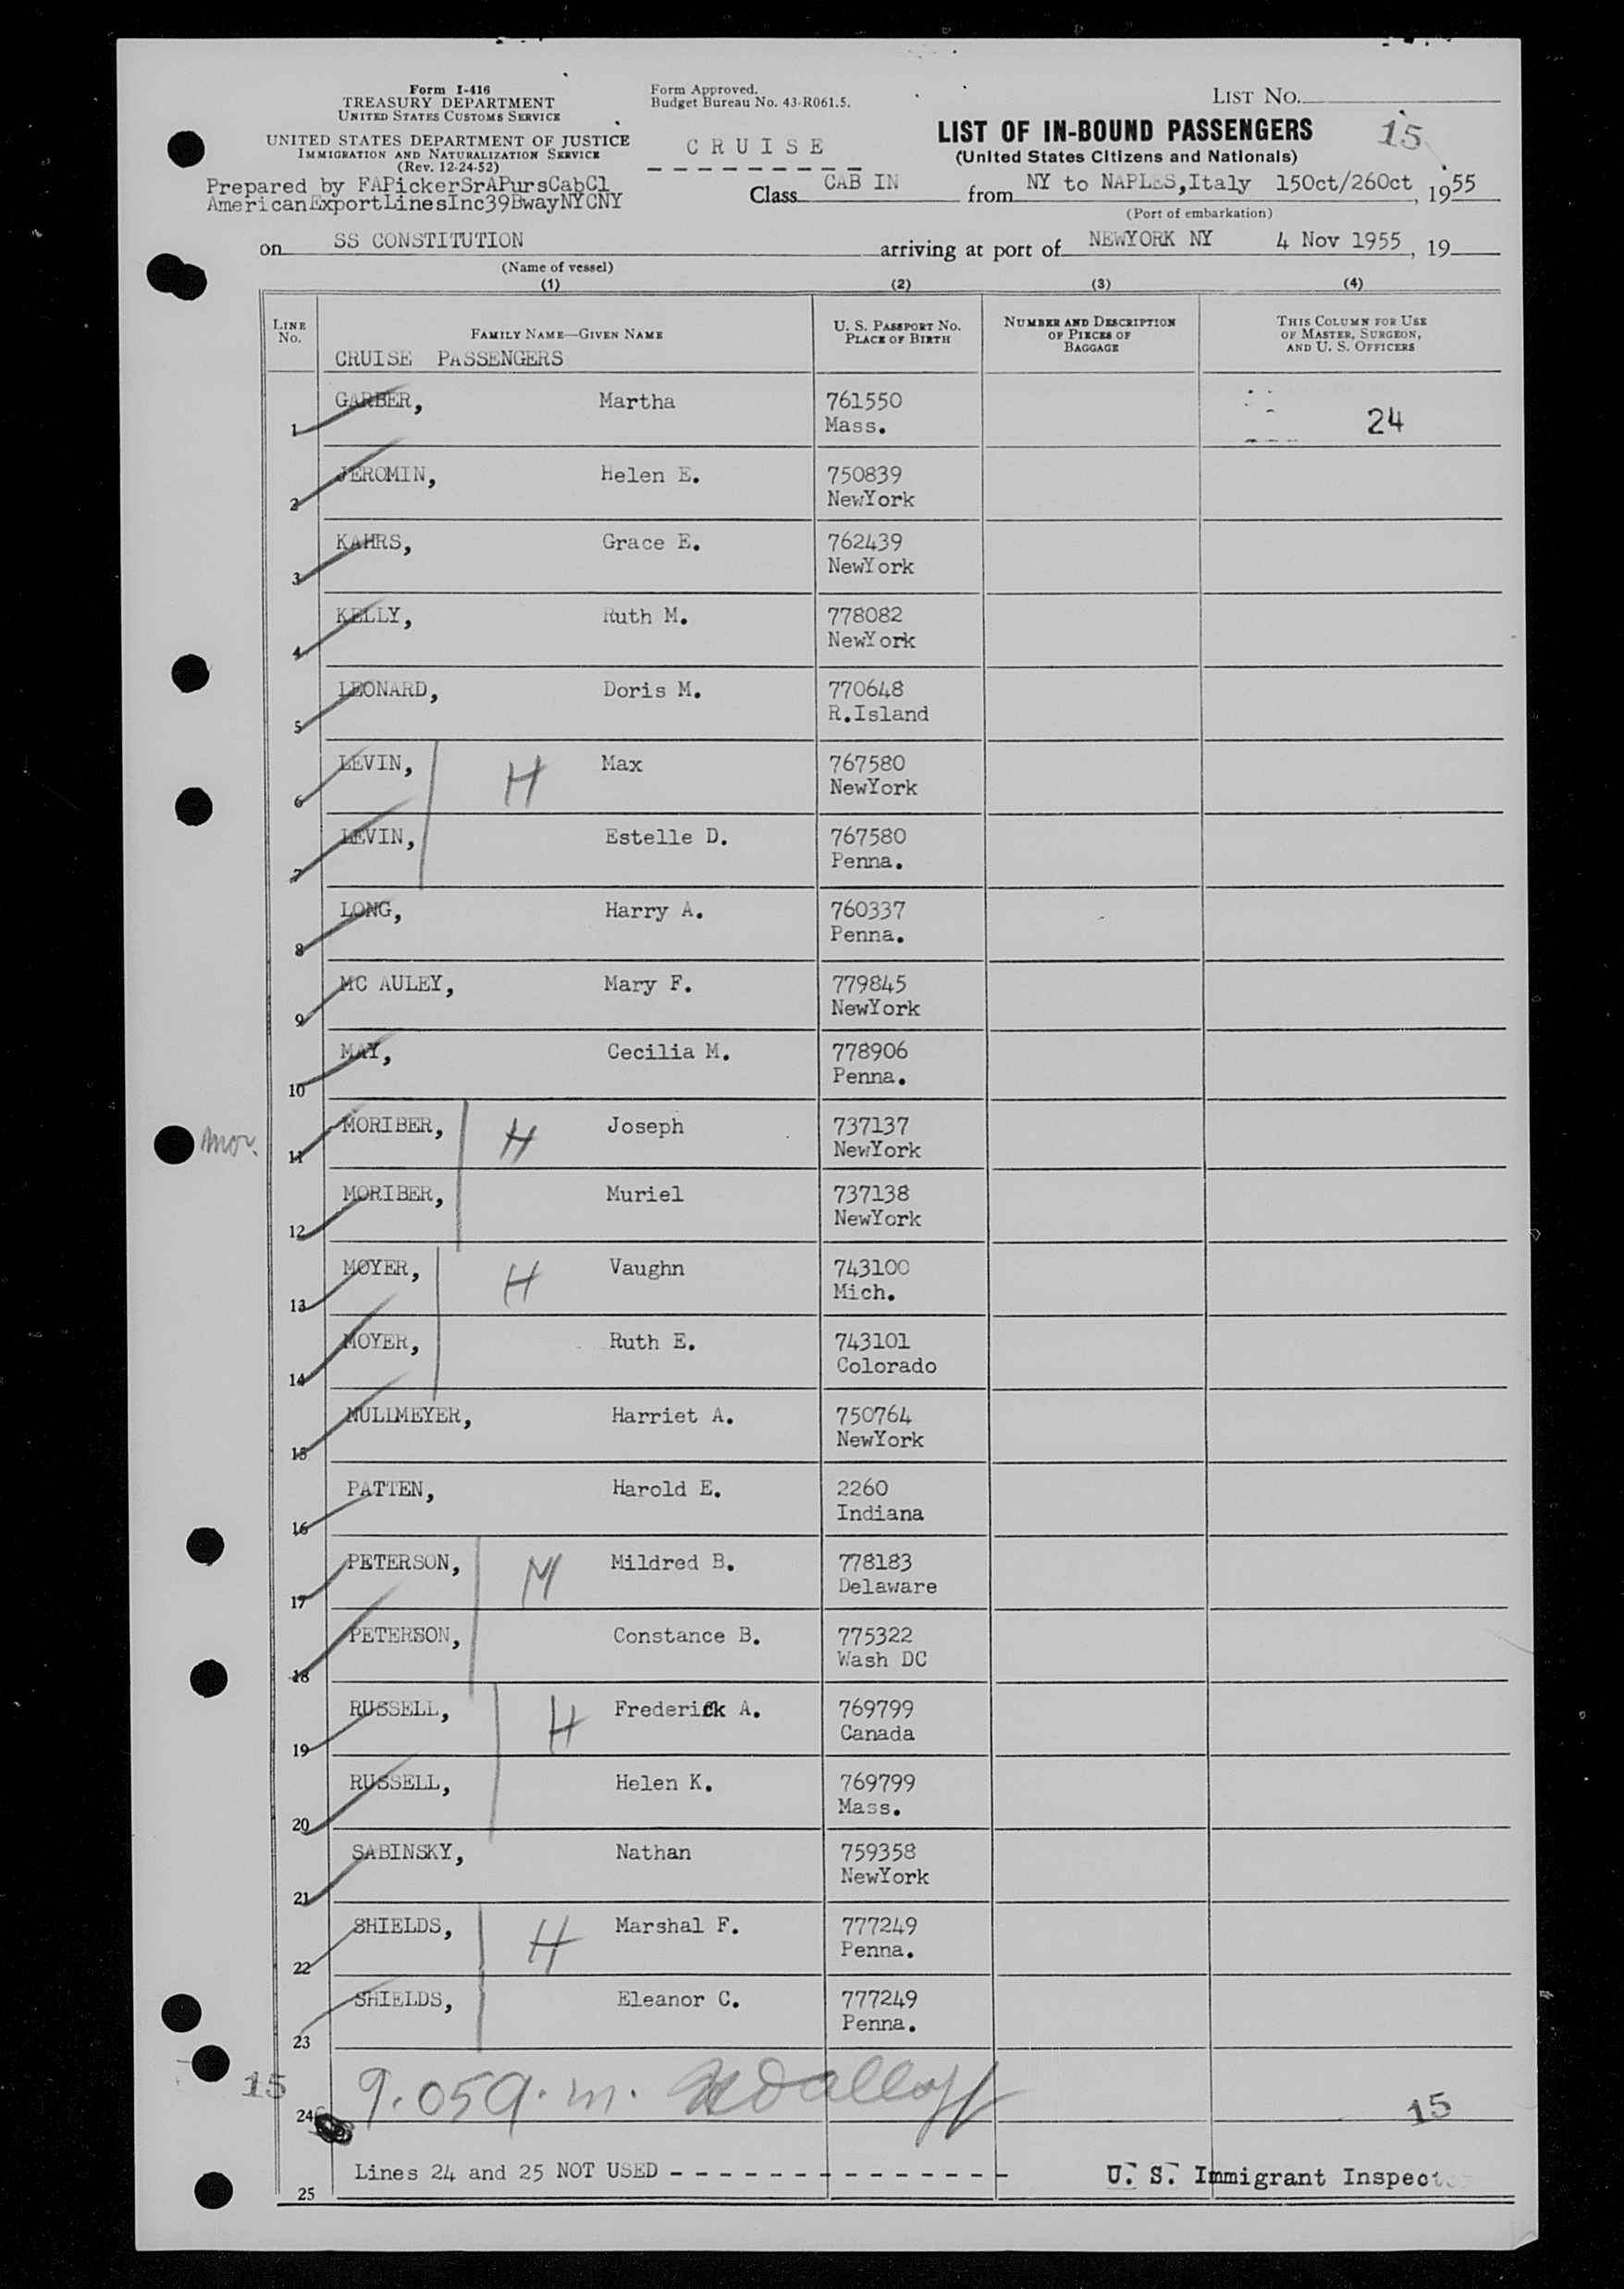 Form I-416
TREASURY DEPARTMENT
UNITED STATES CUSTOMS SERVICE
UNITED STATES DEPARTMENT OF JUSTICE
IMMIGRATION AND NATURALIZATION SERVICE
(Rev. 12-24-52)
Prepared by FAPickerSrAPursCabCl
AmericanExportLinesInc39BwayNYCNY
Form Approved.
Budget Bureau No. 43-R061.5.
CRUISE
LIST NO.
LIST OF IN-BOUND PASSENGERS
15
(United States Citizens and Nationals)
Class CAB IN from NY to NAPLES,Italy 15Oct/26Oct, 1955
(Port of embarkation)
on SS CONSTITUTION arriving at port of NEWYORK NY 4 Nov 1955, 19
(Name of vessel)
(1) (2) (3) (4)
LINE No. FAMILY NAME—GIVEN NAME U. S. PASSPORT NO. PLACE OF BIRTH NUMBER AND DESCRIPTION OF PIECES OF BAGGAGE THIS COLUMN FOR USE OF MASTER, SURGEON, AND U. S. OFFICERS
CRUISE PASSENGERS
1 GARBER, Martha 761550
Mass. 24
2 JEROMIN, Helen E. 750839
NewYork
3 KAHRS, Grace E. 762439
NewYork
4 KELLY, Ruth M. 778082
NewYork
5 LEONARD, Doris M. 770648
R.Island
6 LEVIN, H Max 767580
NewYork
7 LEVIN, Estelle D. 767580
Penna.
8 LONG, Harry A. 760337
Penna.
9 MC AULEY, Mary F. 779845
NewYork
10 MAY, Cecilia M. 778906
Penna.
Mor. 11 MORIBER, H Joseph 737137
NewYork
12 MORIBER, Muriel 737138
NewYork
13 MOYER, H Vaughn 743100
Mich.
14 MOYER, Ruth E. 743101
Colorado
15 MULLMEYER, Harriet A. 750764
NewYork
16 PATTEN, Harold E. 2260
Indiana
17 PETERSON, M Mildred B. 778183
Delaware
18 PETERSON, Constance B. 775322
Wash DC
19 RUSSELL, H Frederick A. 769799
Canada
20 RUSSELL, Helen K. 769799
Mass.
21 SABINSKY, Nathan 759358
NewYork
22 SHIELDS, H Marshal F. 777249
Penna.
23 SHIELDS, Eleanor C. 777249
Penna.
15
24 9.05 a.m. 15
25 Lines 24 and 25 NOT USED - - - - - - - - - - - - - - U. S. Immigrant Inspect